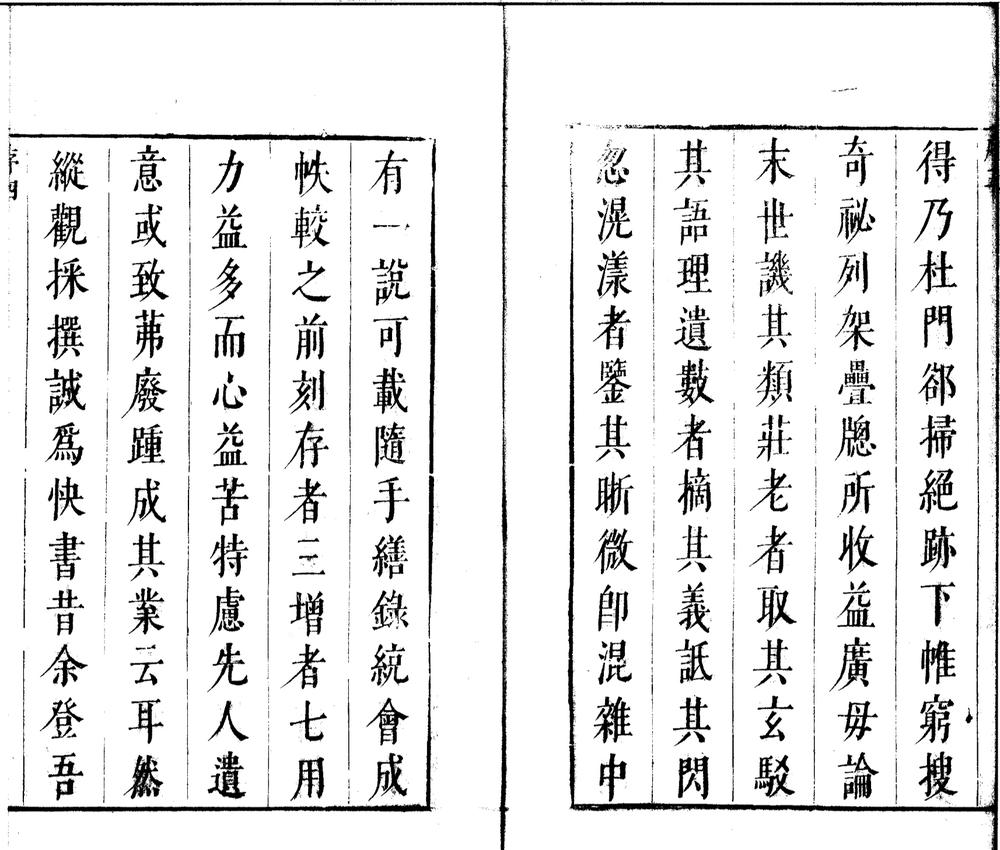 得乃杜門郤掃絕跡下帷窮搜
奇祕列架疊牕所收益廣毋論
末世譏其類莊老者取其玄駁
其語理遺藪者摘其義詆其閃
忽滉漾者鑒其晰微卽混雜中
有一說可載隨手繕錄統會成
帙較之前刻存者三增者七用
力益多而心益苦特慮先人遺
意或致茀廢踵成其業云耳然
縱觀採撰誠爲快書昔余登吾
序四